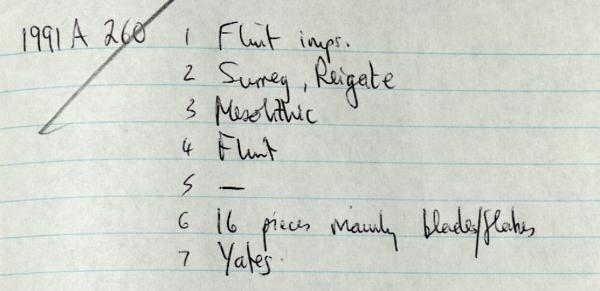 1991 A 260 1 Flint imps.
2 Surrey, Reigate
3 Mesolithic
4 Flint
5 —
6 16 pieces mainly blades/flakes
7 Yates.